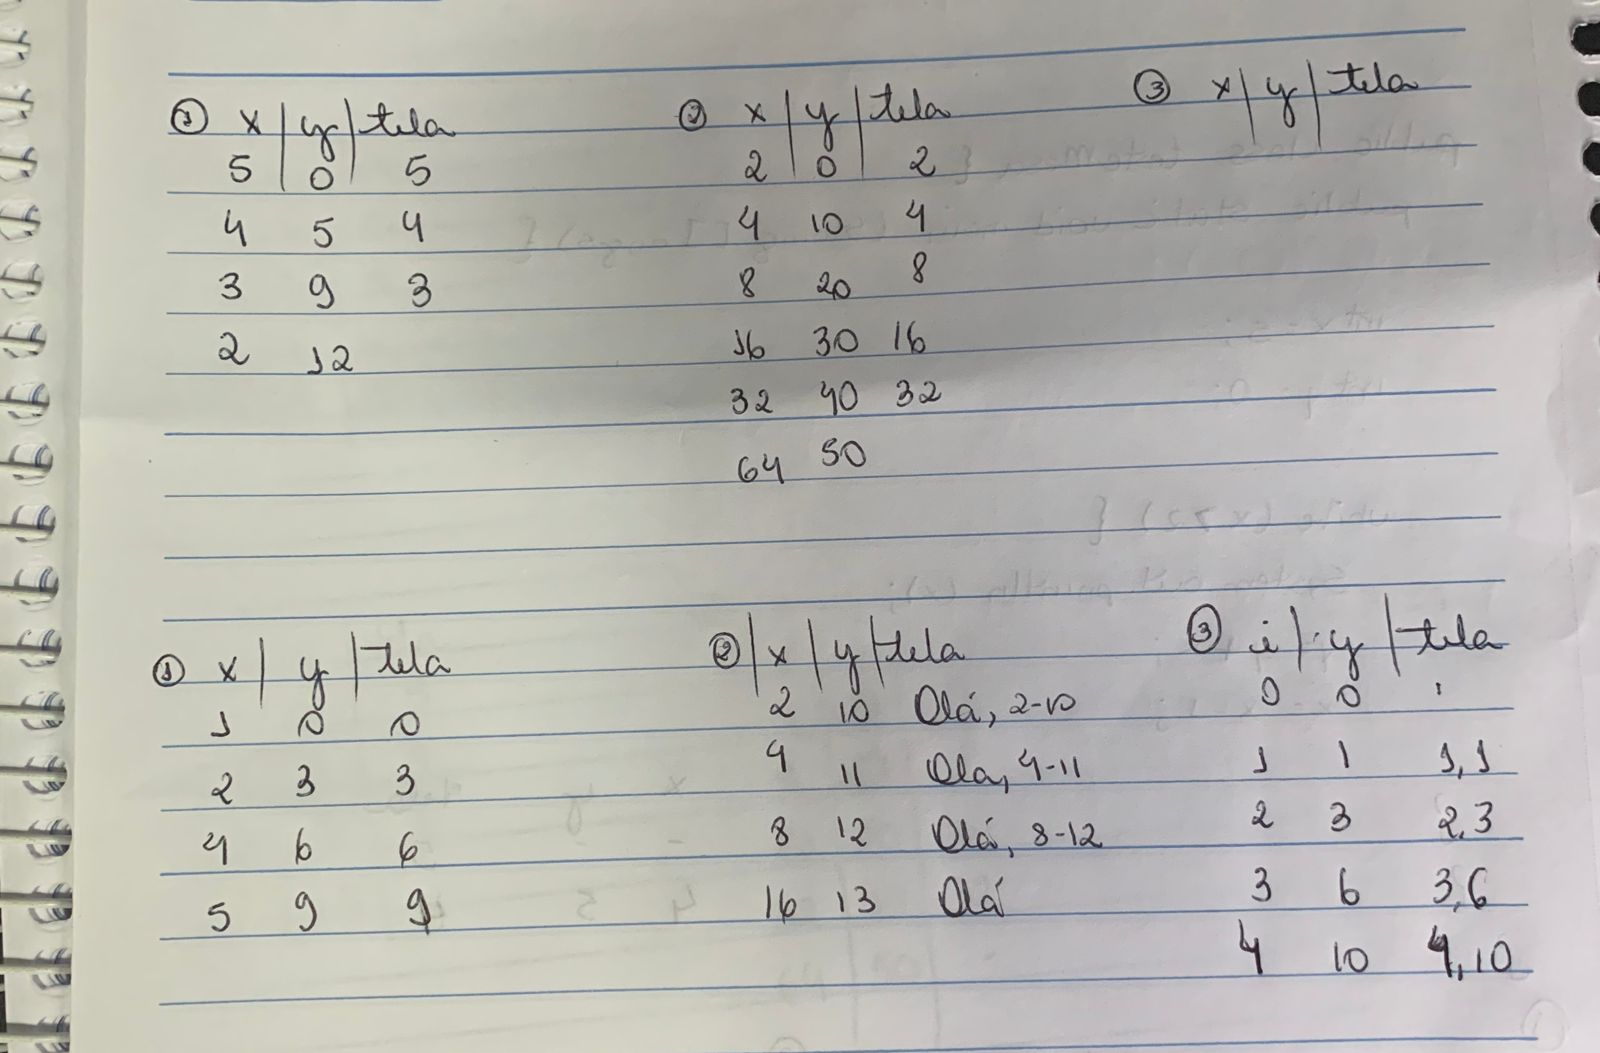 ① x | y | tela
5 | 0 | 5
4 5 4
3 9 3
2 12
② x | y | tela
2 | 0 | 2
4 10 4
8 20 8
16 30 16
32 40 32
64 50
③ x | y | tela
① x | y | tela
1 0 0
2 3 3
4 6 6
5 9 9
② | x | y | tela
2 10 Olá, 2-10
4 11 Ola, 4-11
8 12 Olá, 8-12
16 13 Olá
③ i | y | tela
0 0
1 1 1,1
2 3 2,3
3 6 3,6
4 10 4,10